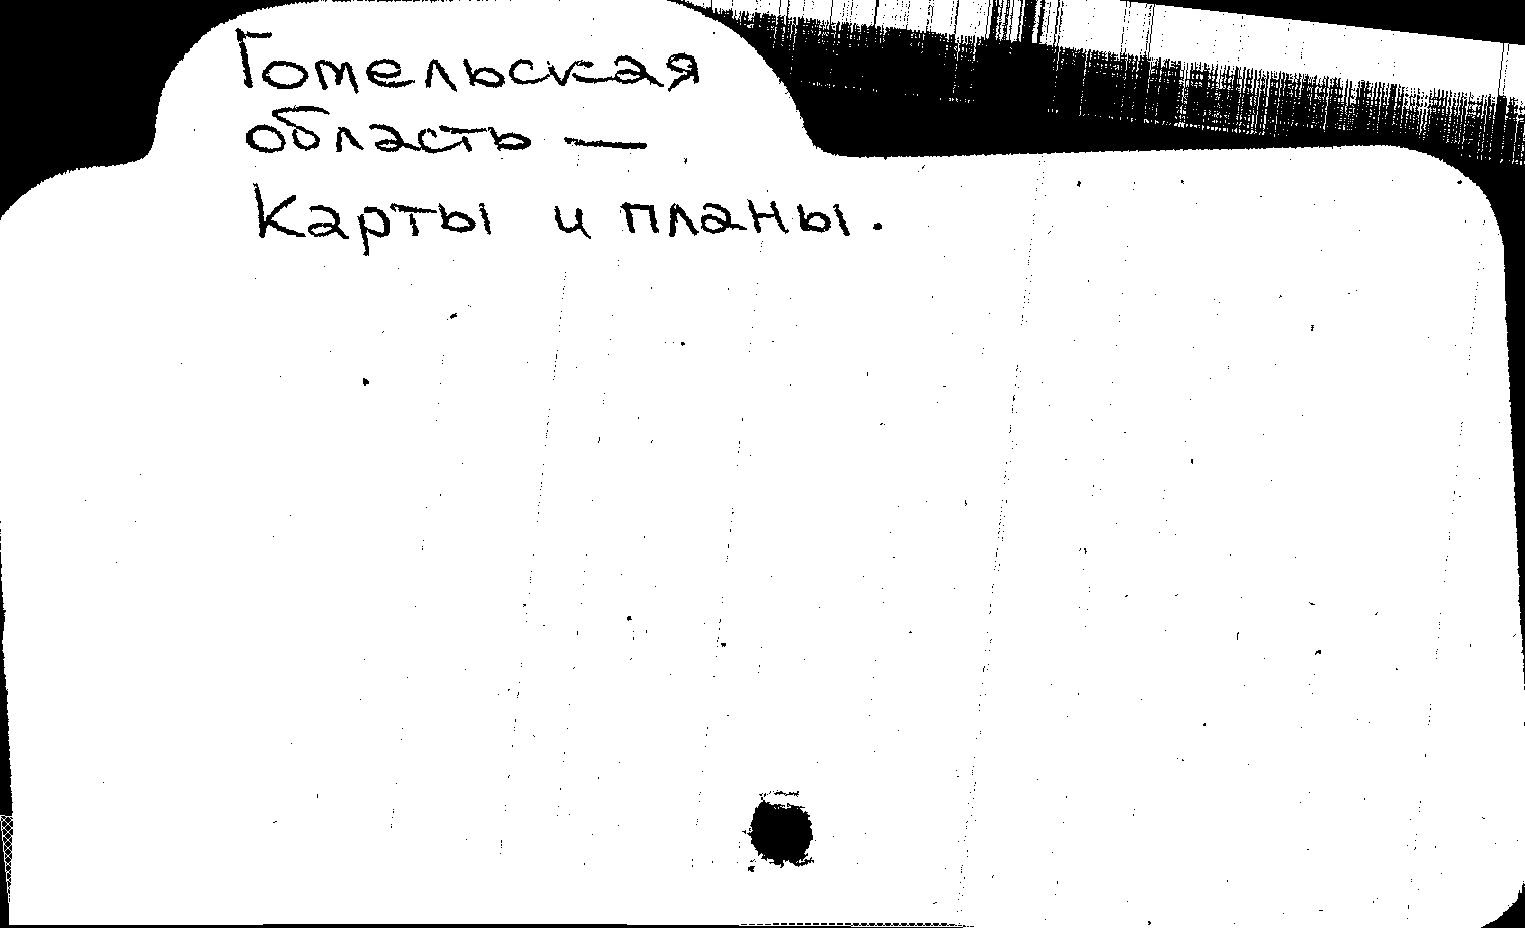 Гомельская
область —
Карты и планы.